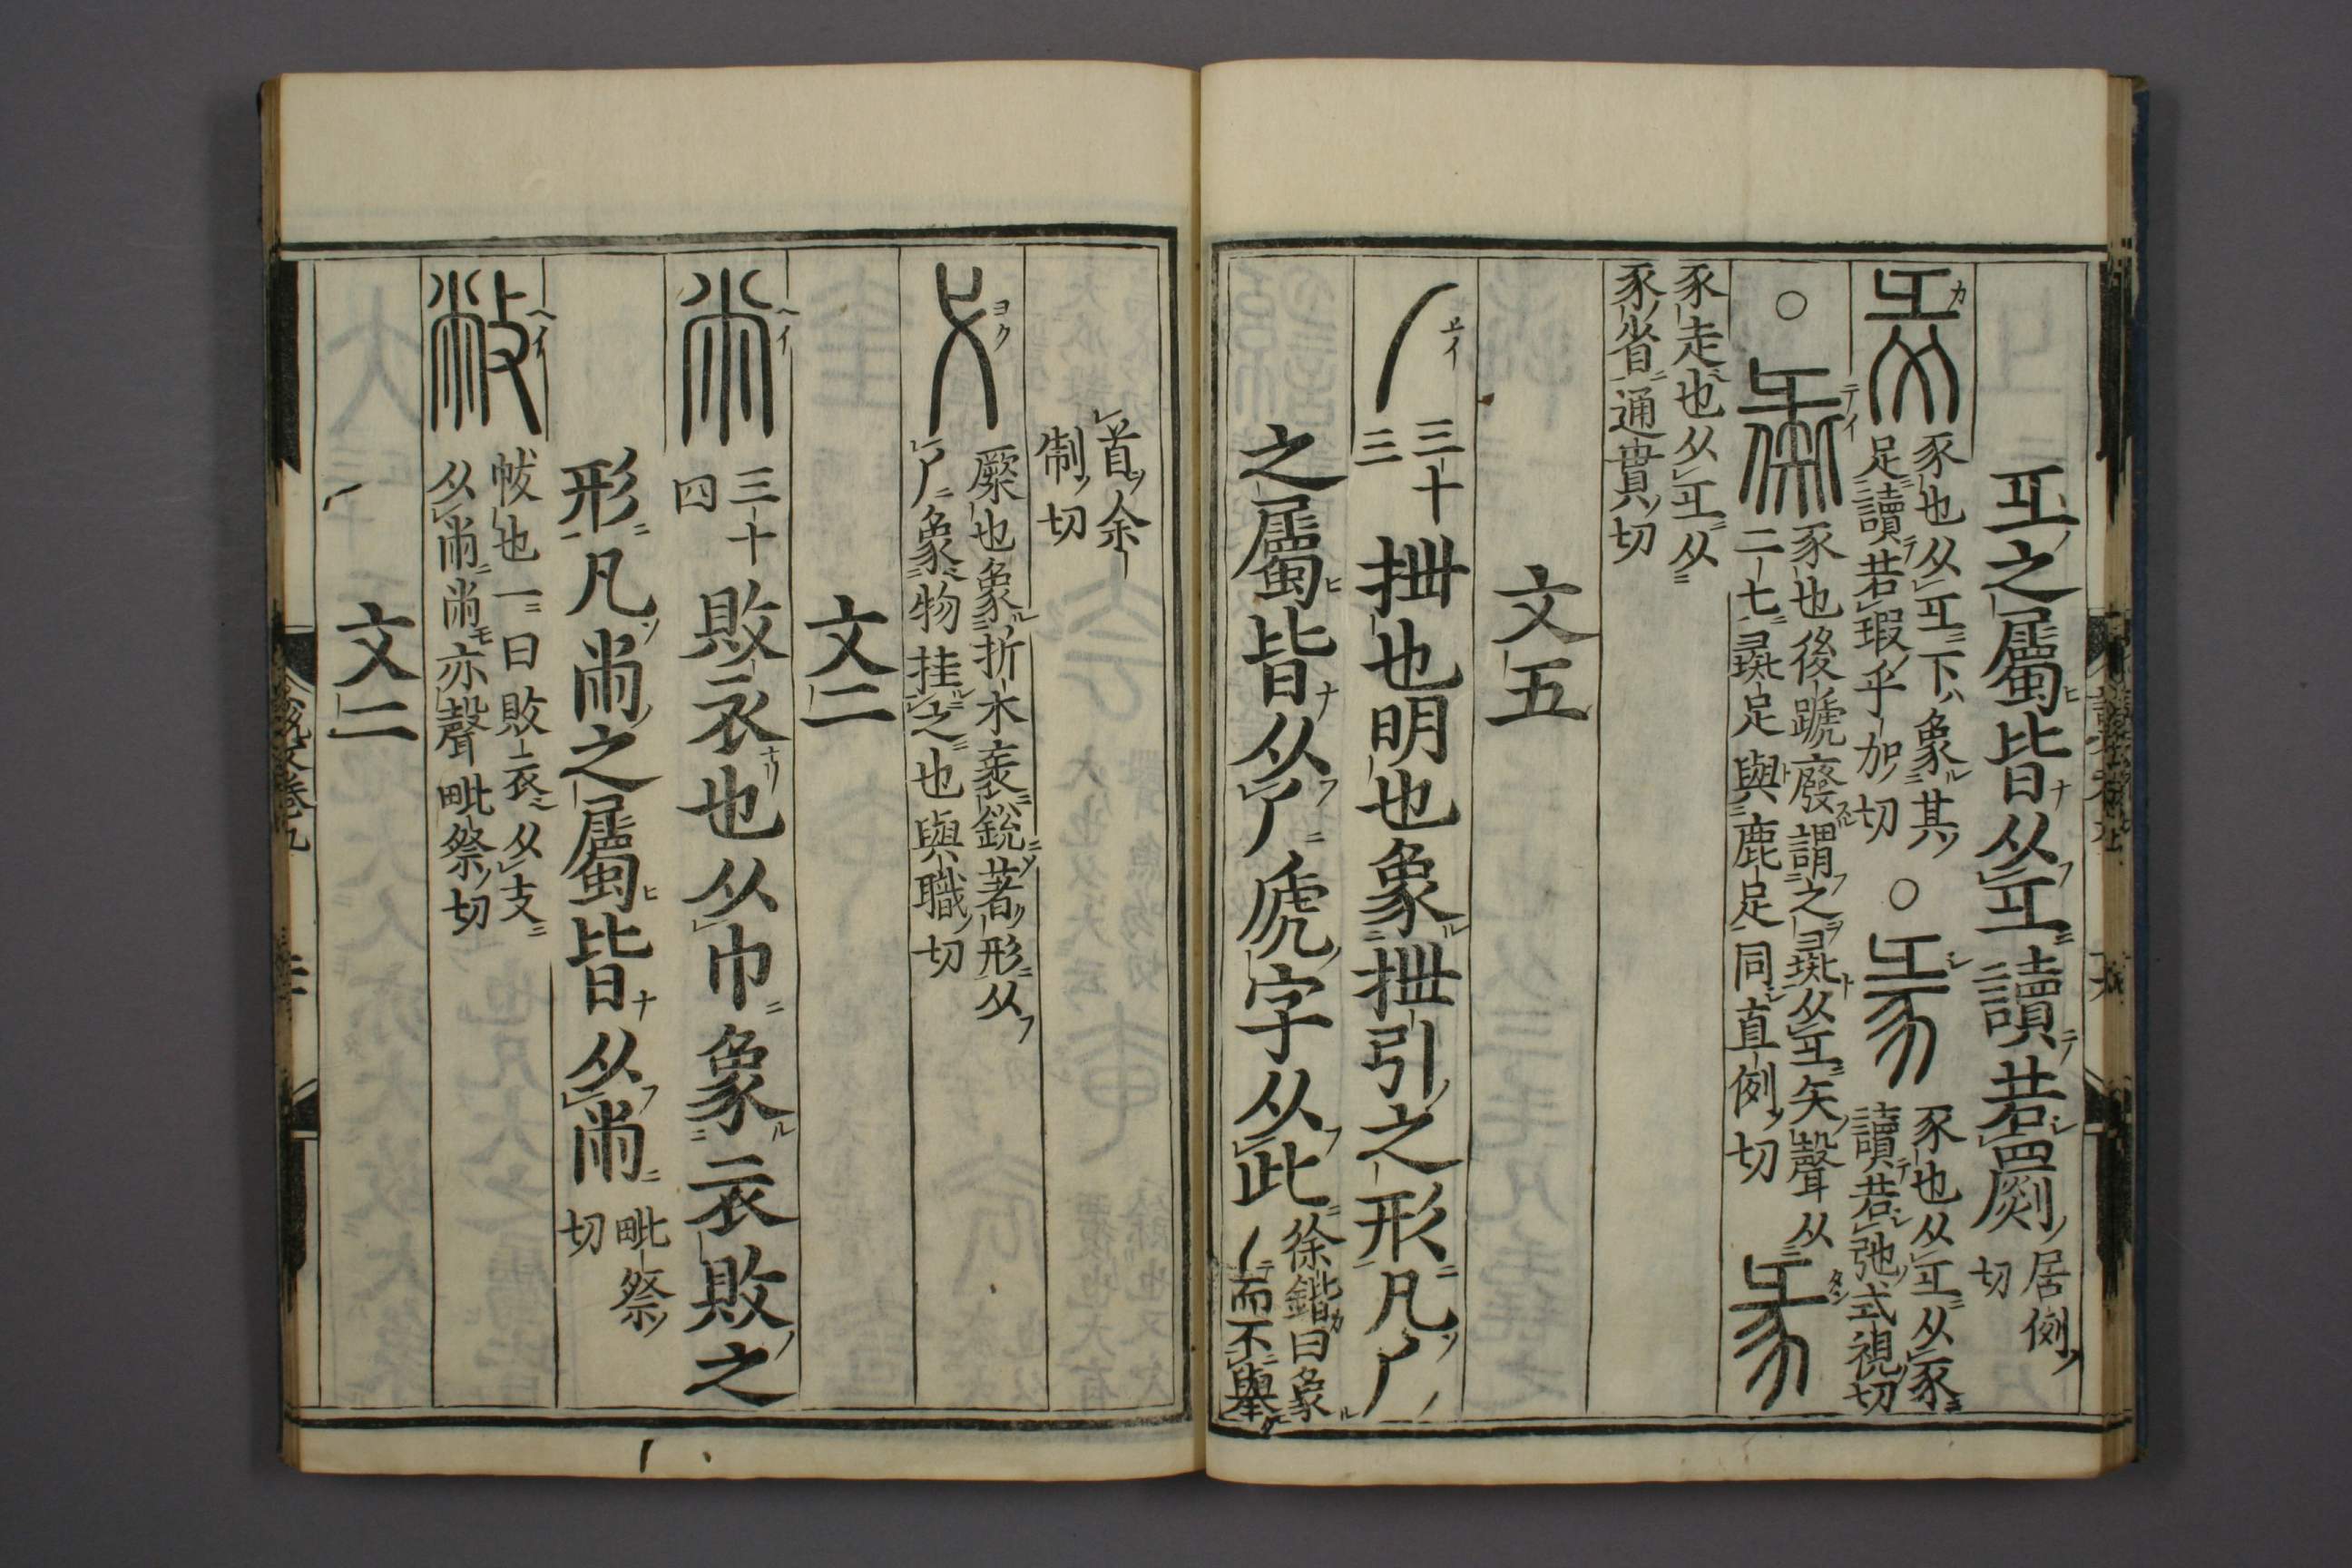 彑之屬皆从彑讀若罽居例
切
豕也从彑下象其
足讀若瑕乎加切
○
豕也从彑从豕
讀若弛式視切
○
豕也後蹏廢謂之彘从彑矢聲从
二匕彘足與鹿足同直例切
豕走也从彑从
豕省通貫切
文五
三十
三
抴也明也象抴引之形凡𠂆
之屬皆从𠂆虒字从此
徐鍇曰象
丿而不舉
首余
制切
橜也象折木衺銳著形从
𠂆象物挂之也與職切
文二
三十
四
敗衣也从巾象衣敗之
形凡㡀之屬皆从㡀
毗祭
切
帗也一曰敗衣从攴
从㡀㡀亦聲毗祭切
文二